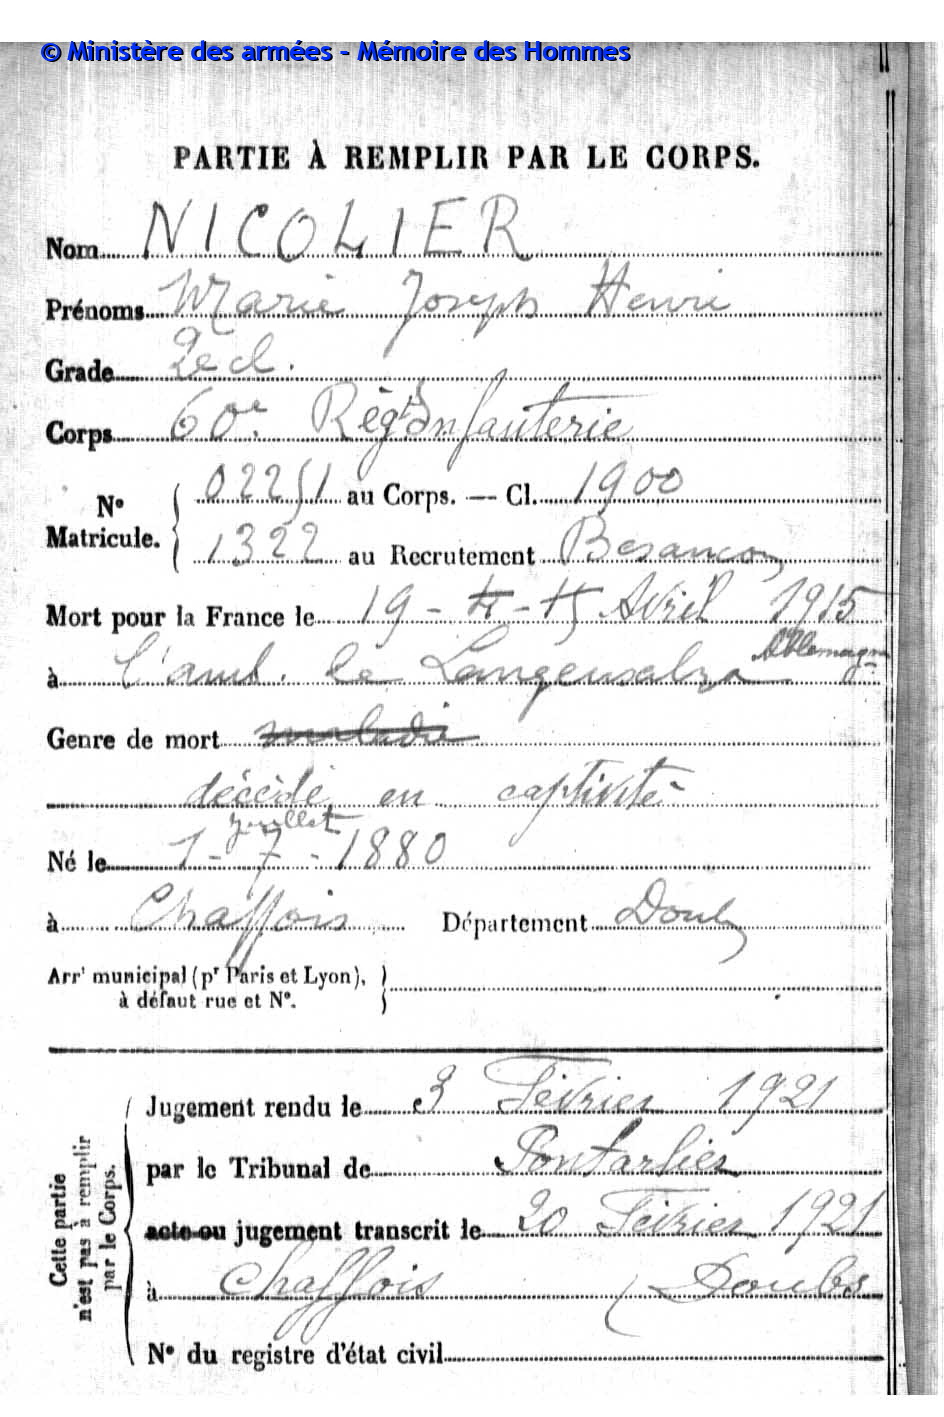 © Ministère des armées - Mémoire des Hommes
PARTIE À REMPLIR PAR LE CORPS.
Nom NICOLIER
Prénoms Marie Joseph Henri
Grade 2e cl.
Corps 60e Régt Infanterie
No Matricule. { 02251 au Corps. — Cl. 1900
1322 au Recrutement Besançon
Mort pour la France le 19 - Avril 1915
à l'amb. de Langensalza Allemagne
Genre de mort maladie
décédé en captivité
juillet
Né le 1 - 7 - 1880
à Chaffois Département Doubs
Arrt municipal (pr Paris et Lyon), à défaut rue et No. }
Cette partie n'est pas à remplir par le Corps.
Jugement rendu le 3 Février 1921
par le Tribunal de Pontarlier
acte ou jugement transcrit le 20 Février 1921
à Chaffois (Doubs
No du registre d'état civil